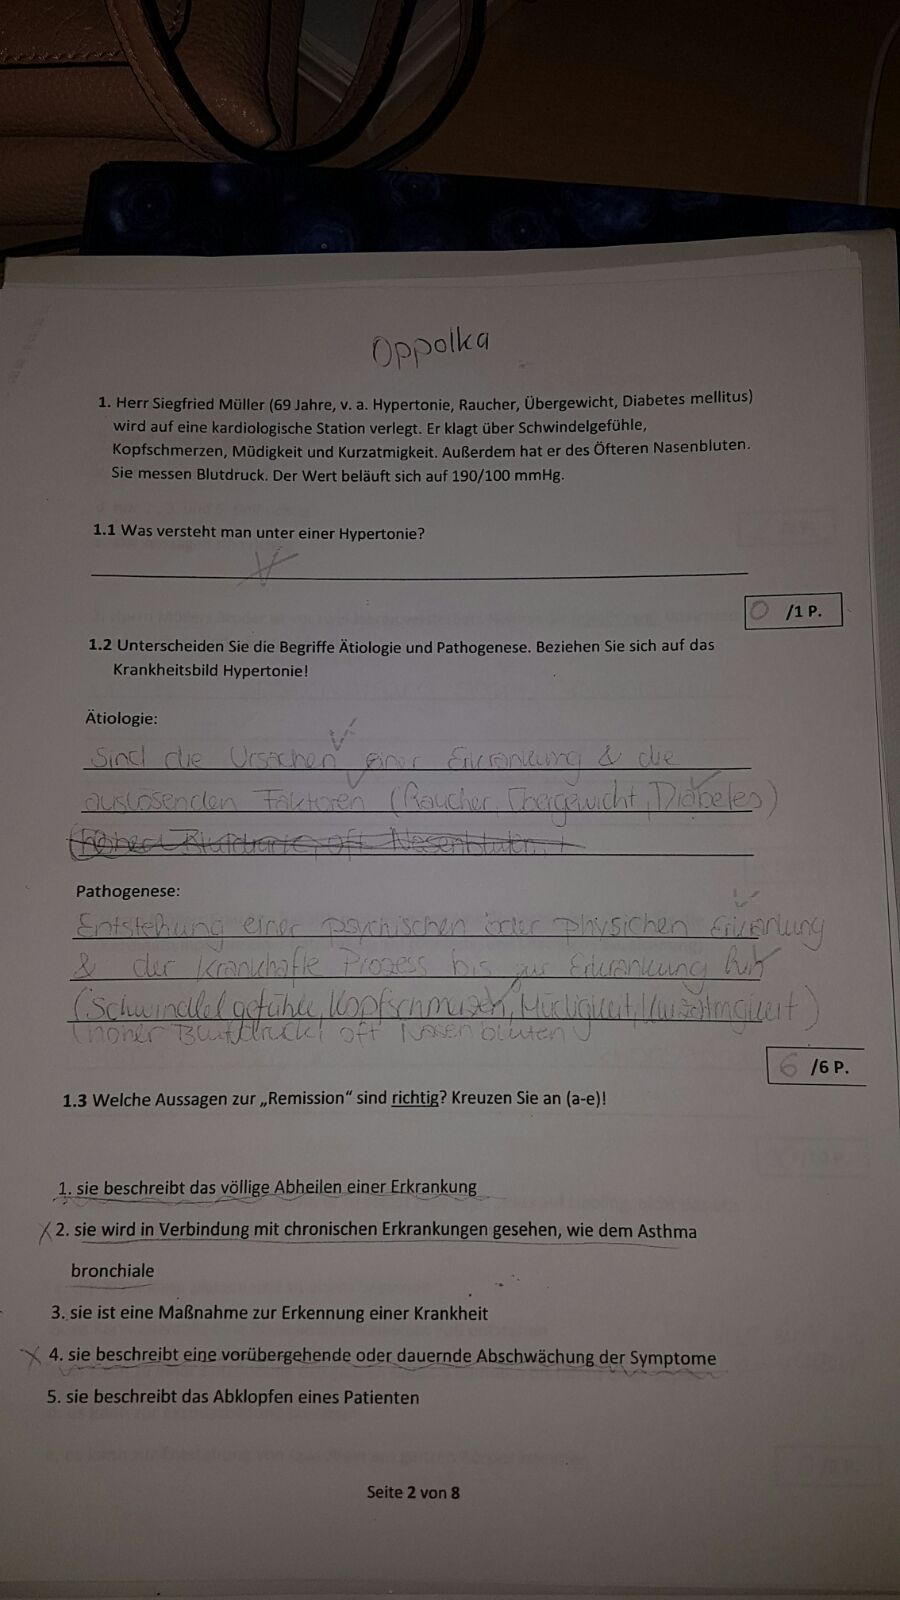 Oppolka
1. Herr Siegfried Müller (69 Jahre, v. a. Hypertonie, Raucher, Übergewicht, Diabetes mellitus)
wird auf eine kardiologische Station verlegt. Er klagt über Schwindelgefühle,
Kopfschmerzen, Müdigkeit und Kurzatmigkeit. Außerdem hat er des Öfteren Nasenbluten.
Sie messen Blutdruck. Der Wert beläuft sich auf 190/100 mmHg.
1.1 Was versteht man unter einer Hypertonie?
0 /1 P.
1.2 Unterscheiden Sie die Begriffe Ätiologie und Pathogenese. Beziehen Sie sich auf das
Krankheitsbild Hypertonie!
Ätiologie:
Sind die Ursachen einer Erkrankung & die
auslösenden Faktoren (Raucher, Übergewicht, Diabetes)
(hoher Blutdruck, oft Nasenbluten
Pathogenese:
Entstehung einer psychischen oder physichen Erkrankung
& der krankhafte Prozess bis zur Erkrankung
(Schwindelgefühle, Kopfschmerzen, Müdigkeit, Kurzatmigkeit)
(hoher Blutdruck) oft Nasenbluten
6 /6 P.
1.3 Welche Aussagen zur „Remission“ sind richtig? Kreuzen Sie an (a-e)!
1. sie beschreibt das völlige Abheilen einer Erkrankung
X 2. sie wird in Verbindung mit chronischen Erkrankungen gesehen, wie dem Asthma
bronchiale
3. sie ist eine Maßnahme zur Erkennung einer Krankheit
X 4. sie beschreibt eine vorübergehende oder dauernde Abschwächung der Symptome
5. sie beschreibt das Abklopfen eines Patienten
Seite 2 von 8